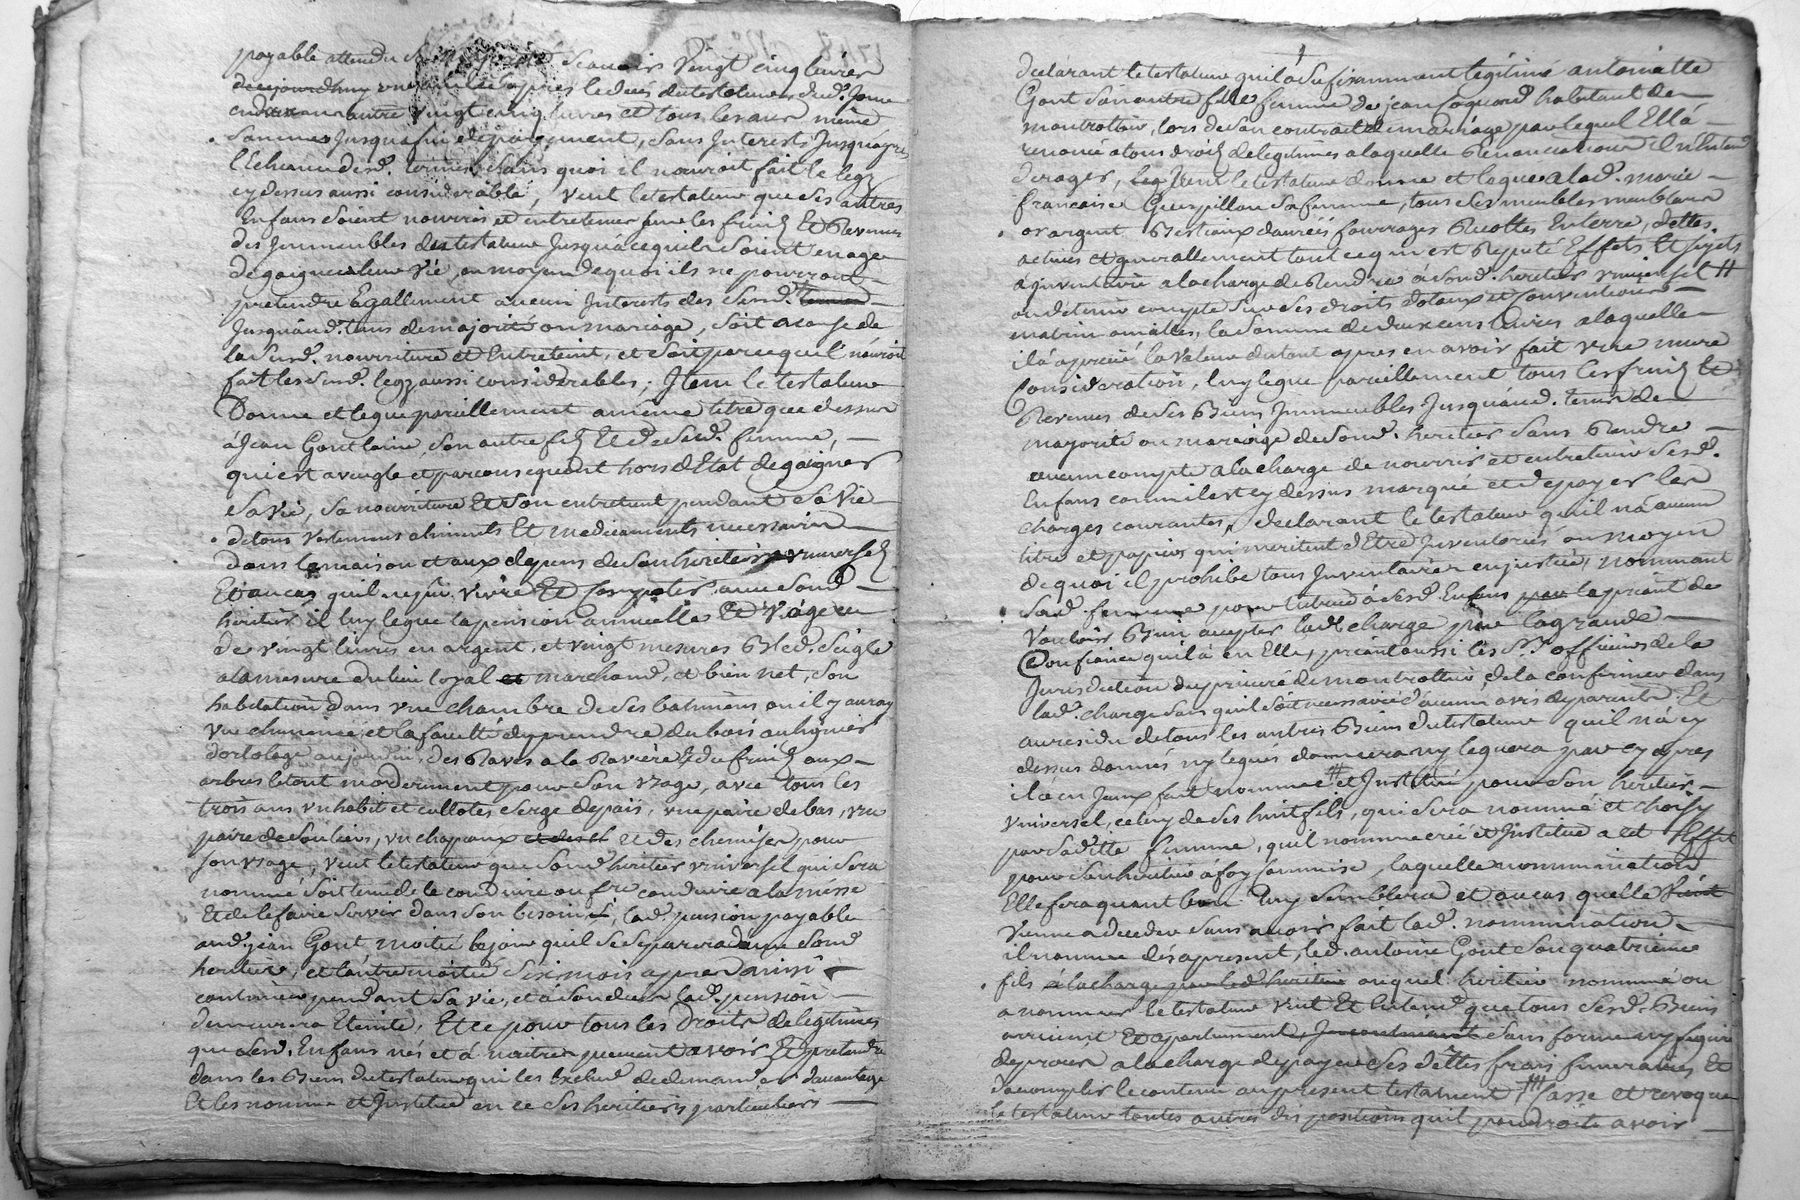 payable attendu Scavoir Vingt cinq livres
après le deces du testateur
autre Vingt cinq livres et tous les ans même
Somme Jusqua fin de payement, sans Interests Jusquapres
l'Echeance desd. termes, sans quoi il n'auroit fait le legz
cy dessus aussi considerable, Veut le testateur que ses autres
Enfans Soient nourris et entretenus sur les fruiz Et Revenus
des Immeubles du testateur Jusqu'a ce quils Soient en age
de gaigner leur Vie, au moyen de quoi ils ne pourront
pretendre Egallement aucun Interests des Susd.
Jusquaud. tems de majorité ou mariage, soit a cause de
la Susd. nourriture et Entretient, et soit parce quil n'auroit
fait les Susd. legz aussi considerables; Item le testateur
Donne et legue pareillement a même titre que dessus
à Jean Gont laine, son autre filz Et de Sad. femme,
qui est aveugle et par consequent hors d'Etat de gaigner
Sa Vie, Sa nourriture Et Son entretient pendant Sa Vie
de tous Vestemens aliments Et medicaments necessaires
dans la maison et aux depens de Son heritier universel
Et au cas quil ne put vivre Et Compatir avec Sond.
heritier il luy legue la pension annuelle Et Viagere
de vingt livres en argent, et vingt mesures Bled Seigle
a la mesure du lieu loyal et marchand, et bien net, Son
habitation dans une chambre de Ses batimens ou il y aura
une cheminée, et la faculté de prendre du bois au bucher
d'ortolage au jardin, des Raves a la Raviere Et du fruiz aux
arbres le tout moderement pour Son usage, avec tous les
trois ans un habit et cullotes Serge de pais, une paire de bas, une
paire de Souliers, un chapeaux et des chemises pour
Son usage, Veut le testateur que Sond. heritier universel qui Sera
nommé Soit tenu de le conduire ou fre conduire a la messe
Et de le faire Servir dans Son besoin, lad. pension payable
aud. Jean Gont moitié le jour quil Se Separera d'avec Sond.
heritier, et l'autre moitié Six mois apres ainsi
continuer pendant Sa Vie, et a Son deces lad. pension
demeurera Eteinte, Et ce pour tous les Droits de legitimes
que Sesd. Enfans nés et a naitre peuvent avoir Et pretendre
dans les Biens du testateur qui les Exclud de demander davantage
Et les nomme et Institue en ce Ses heritiers particuliers
Declarant le testateur quil a Suffisamment legitimé antoinette
Gont Son autre fille femme de jean habitant de
montrottier, lors de Son contract de mariage par lequel Ell'á
renoncé a tous droiz de legitimes a laquelle Renonciation il n'Entend
deroger, Item le testateur donne et legue a lad. marie
francoise Guerpillon Sa femme, tous Ses meubles meublans
or argent Bestiaux danrées fourrages Recoltes En terre, dettes
actives et generallement tout ce qui est Reputé Effets Et Sujets
a inventaire a la charge de Rendre a Sond. heritier universel #
ou detenir compte Sur Ses droits dotaux et Conventions
matrimonialles, la Somme de deux cens livres a laquelle
il a aprecié la Valeur du tout apres en avoir fait une mure
Consideration, luy legue pareillement tous les fruiz Et
Revenus de Ses Biens Immeubles Jusquaud. tems de
majorité ou mariage de Sond. heritier Sans Rendre
aucun compte a la charge de nourrir et entretenir Sesd.
Enfans comm'il est cy dessus marqué et de payer les
charges courantes, declarant le testateur quil n'a aucun
titre et papiers qui meritent d'Etre Inventoriés au moyen
de quoi il prohibe tous Inventaires en justice, nommant
Sad. femme pour tutrice a Sesd. Enfans la priant de
Vouloir Bien accepter lad. charge pour la grande
Confiance quil a en Elle, priant aussi les Srs. officiers de la
Jurisdiction du prieuré de montrottier, de la confirmer dans
lad. charge Sans quil Soit necessaire d'aucun avis de parents, Et
au residu de tous les autres Biens du testateur quil n'a cy
dessus donnés ny legués donnera ny leguera par cy apres
il a en Iceux fait nommé # et Institué pour Son heritier
Universel, celuy de Ses huit fils, qui Sera nommé et choisy
par Saditte femme, quil nomme crée et Institue a cet Effet
pour Son heritiere a foy commise, laquelle nommination
Elle fera quant bon luy Semblera et au cas quelle
Vienne a deceder Sans avoir fait lad. nommination
il nomme des a present, led. antoine Gont Son quatrieme
fils auquel heritier nommé ou
a nommer le testateur veut Et Entend que tous Sesd. Biens
arrivent Et apartiennent Sans forme ny figure
de proces a la charge de payer Ses dettes frais funeraires Et
d'accomplir le contenu au present testament # Casse et revoque
le testateur toutes autres dispositions quil pourroit avoir